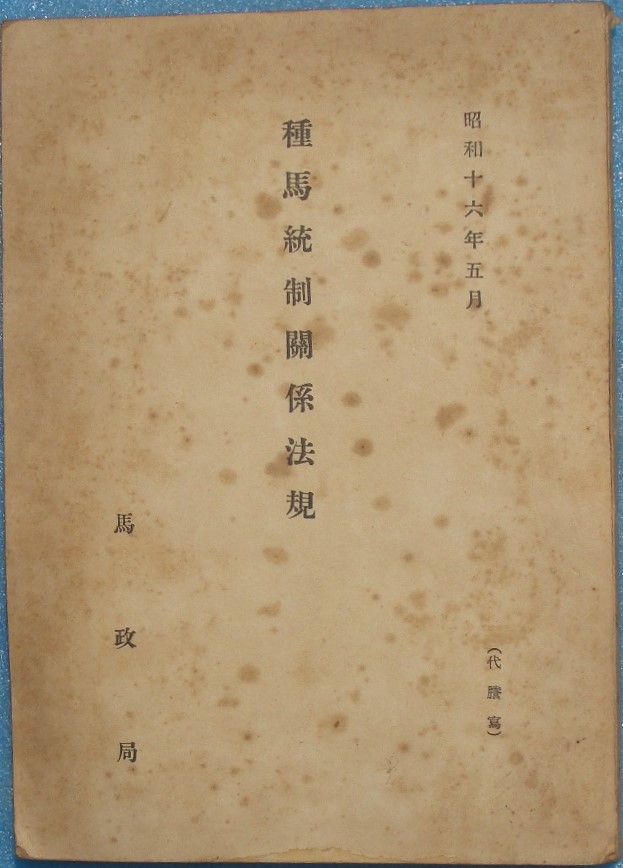 昭和十六年五月
（代謄寫）
種馬統制關係法規
馬政局